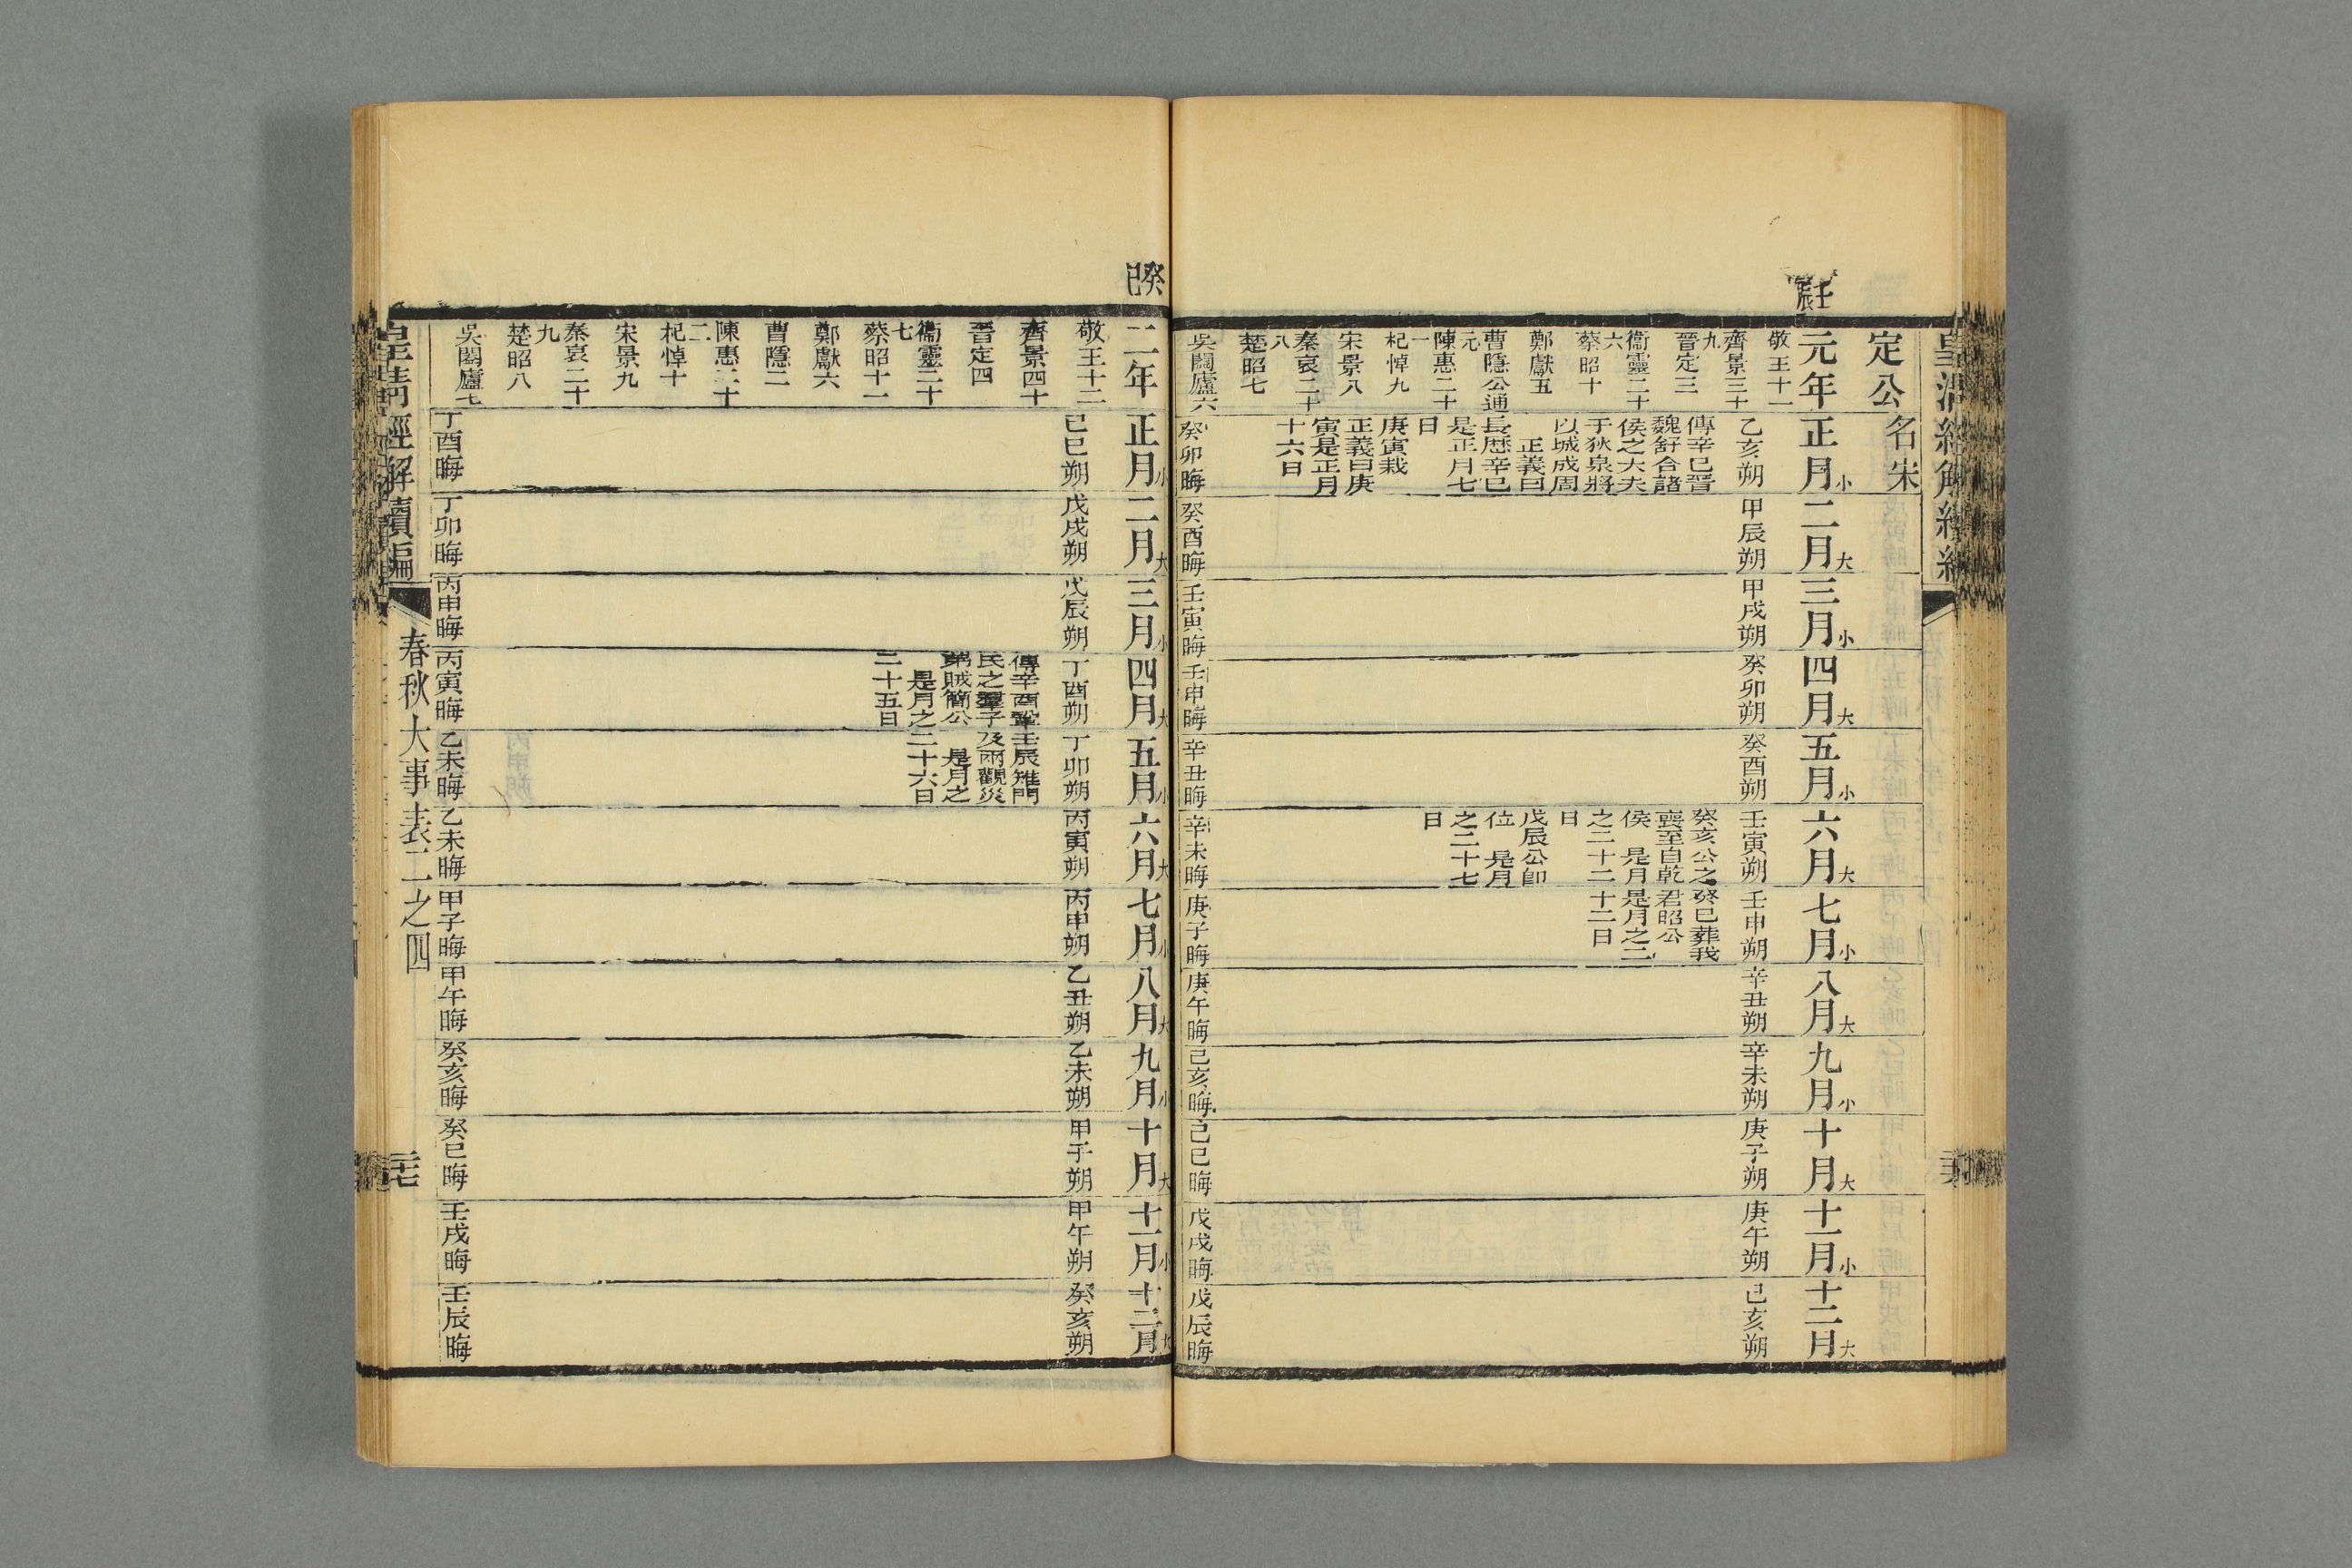 皇清經解續編
壬辰
定公
名宋
元年
正月小
二月大
三月小
四月大
五月小
六月大
七月小
八月大
九月小
十月大
十一月小
十二月大
敬王十一
齊景三十
九
晉定三
衞靈二十
六
蔡昭十
鄭獻五
曹隱公通
元
陳惠二十
一
杞悼九
宋景八
秦哀二十
八
楚昭七
吳闔廬六
乙亥朔
傳辛巳晉
魏舒合諸
侯之大夫
于狄泉將
以城成周
正義曰
長歷辛巳
是正月七
日
庚寅栽
正義曰庚
寅是正月
十六日
癸卯晦
甲辰朔
癸酉晦
甲戌朔
壬寅晦
癸卯朔
壬申晦
癸酉朔
辛丑晦
壬寅朔
癸亥公之
喪至自乾
侯 是月
之二十二
日
戊辰公即
位 是月
之二十七
日
辛未晦
壬申朔
癸巳葬我
君昭公
是月之二
十二日
庚子晦
辛丑朔
庚午晦
辛未朔
己亥晦
庚子朔
己巳晦
庚午朔
戊戌晦
己亥朔
戊辰晦
癸巳
二年
正月小
二月大
三月小
四月大
五月小
六月大
七月小
八月大
九月小
十月大
十一月小
十二月大
敬王十二
齊景四十
晉定四
衞靈二十
七
蔡昭十一
鄭獻六
曹隱二
陳惠二十
二
杞悼十
宋景九
秦哀二十
九
楚昭八
吳闔廬七
己巳朔
丁酉晦
戊戌朔
丁卯晦
戊辰朔
丙申晦
丁酉朔
傳辛酉鞏
氏之羣子
弟賊簡公
是月之
二十五日
丙寅晦
丁卯朔
壬辰雉門
及兩觀災
是月之
二十六日
乙未晦
丙寅朔
乙未晦
丙申朔
甲子晦
乙丑朔
甲午晦
乙未朔
癸亥晦
甲子朔
癸巳晦
甲午朔
壬戌晦
癸亥朔
壬辰晦
皇清經解續編
春秋大事表二之四
三七